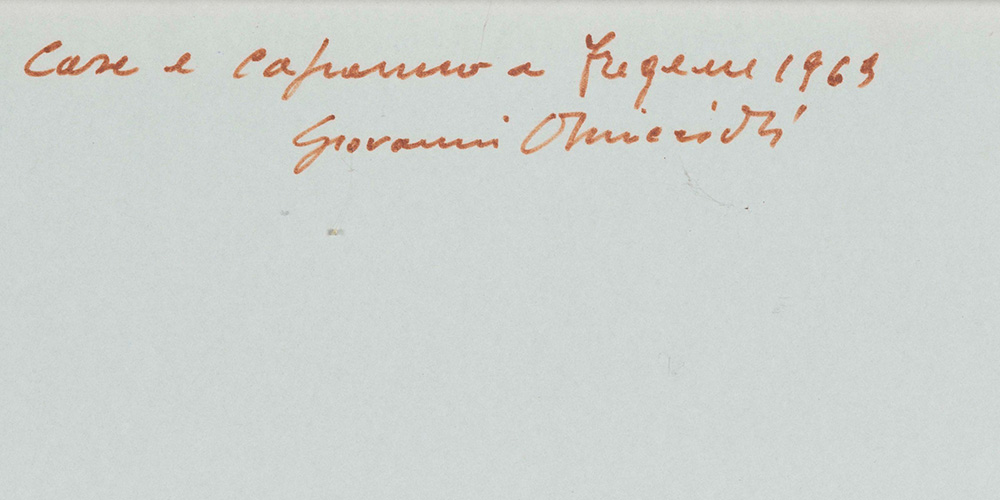 Case e capanno a Fregene 1969
Giovanni Omiccioli